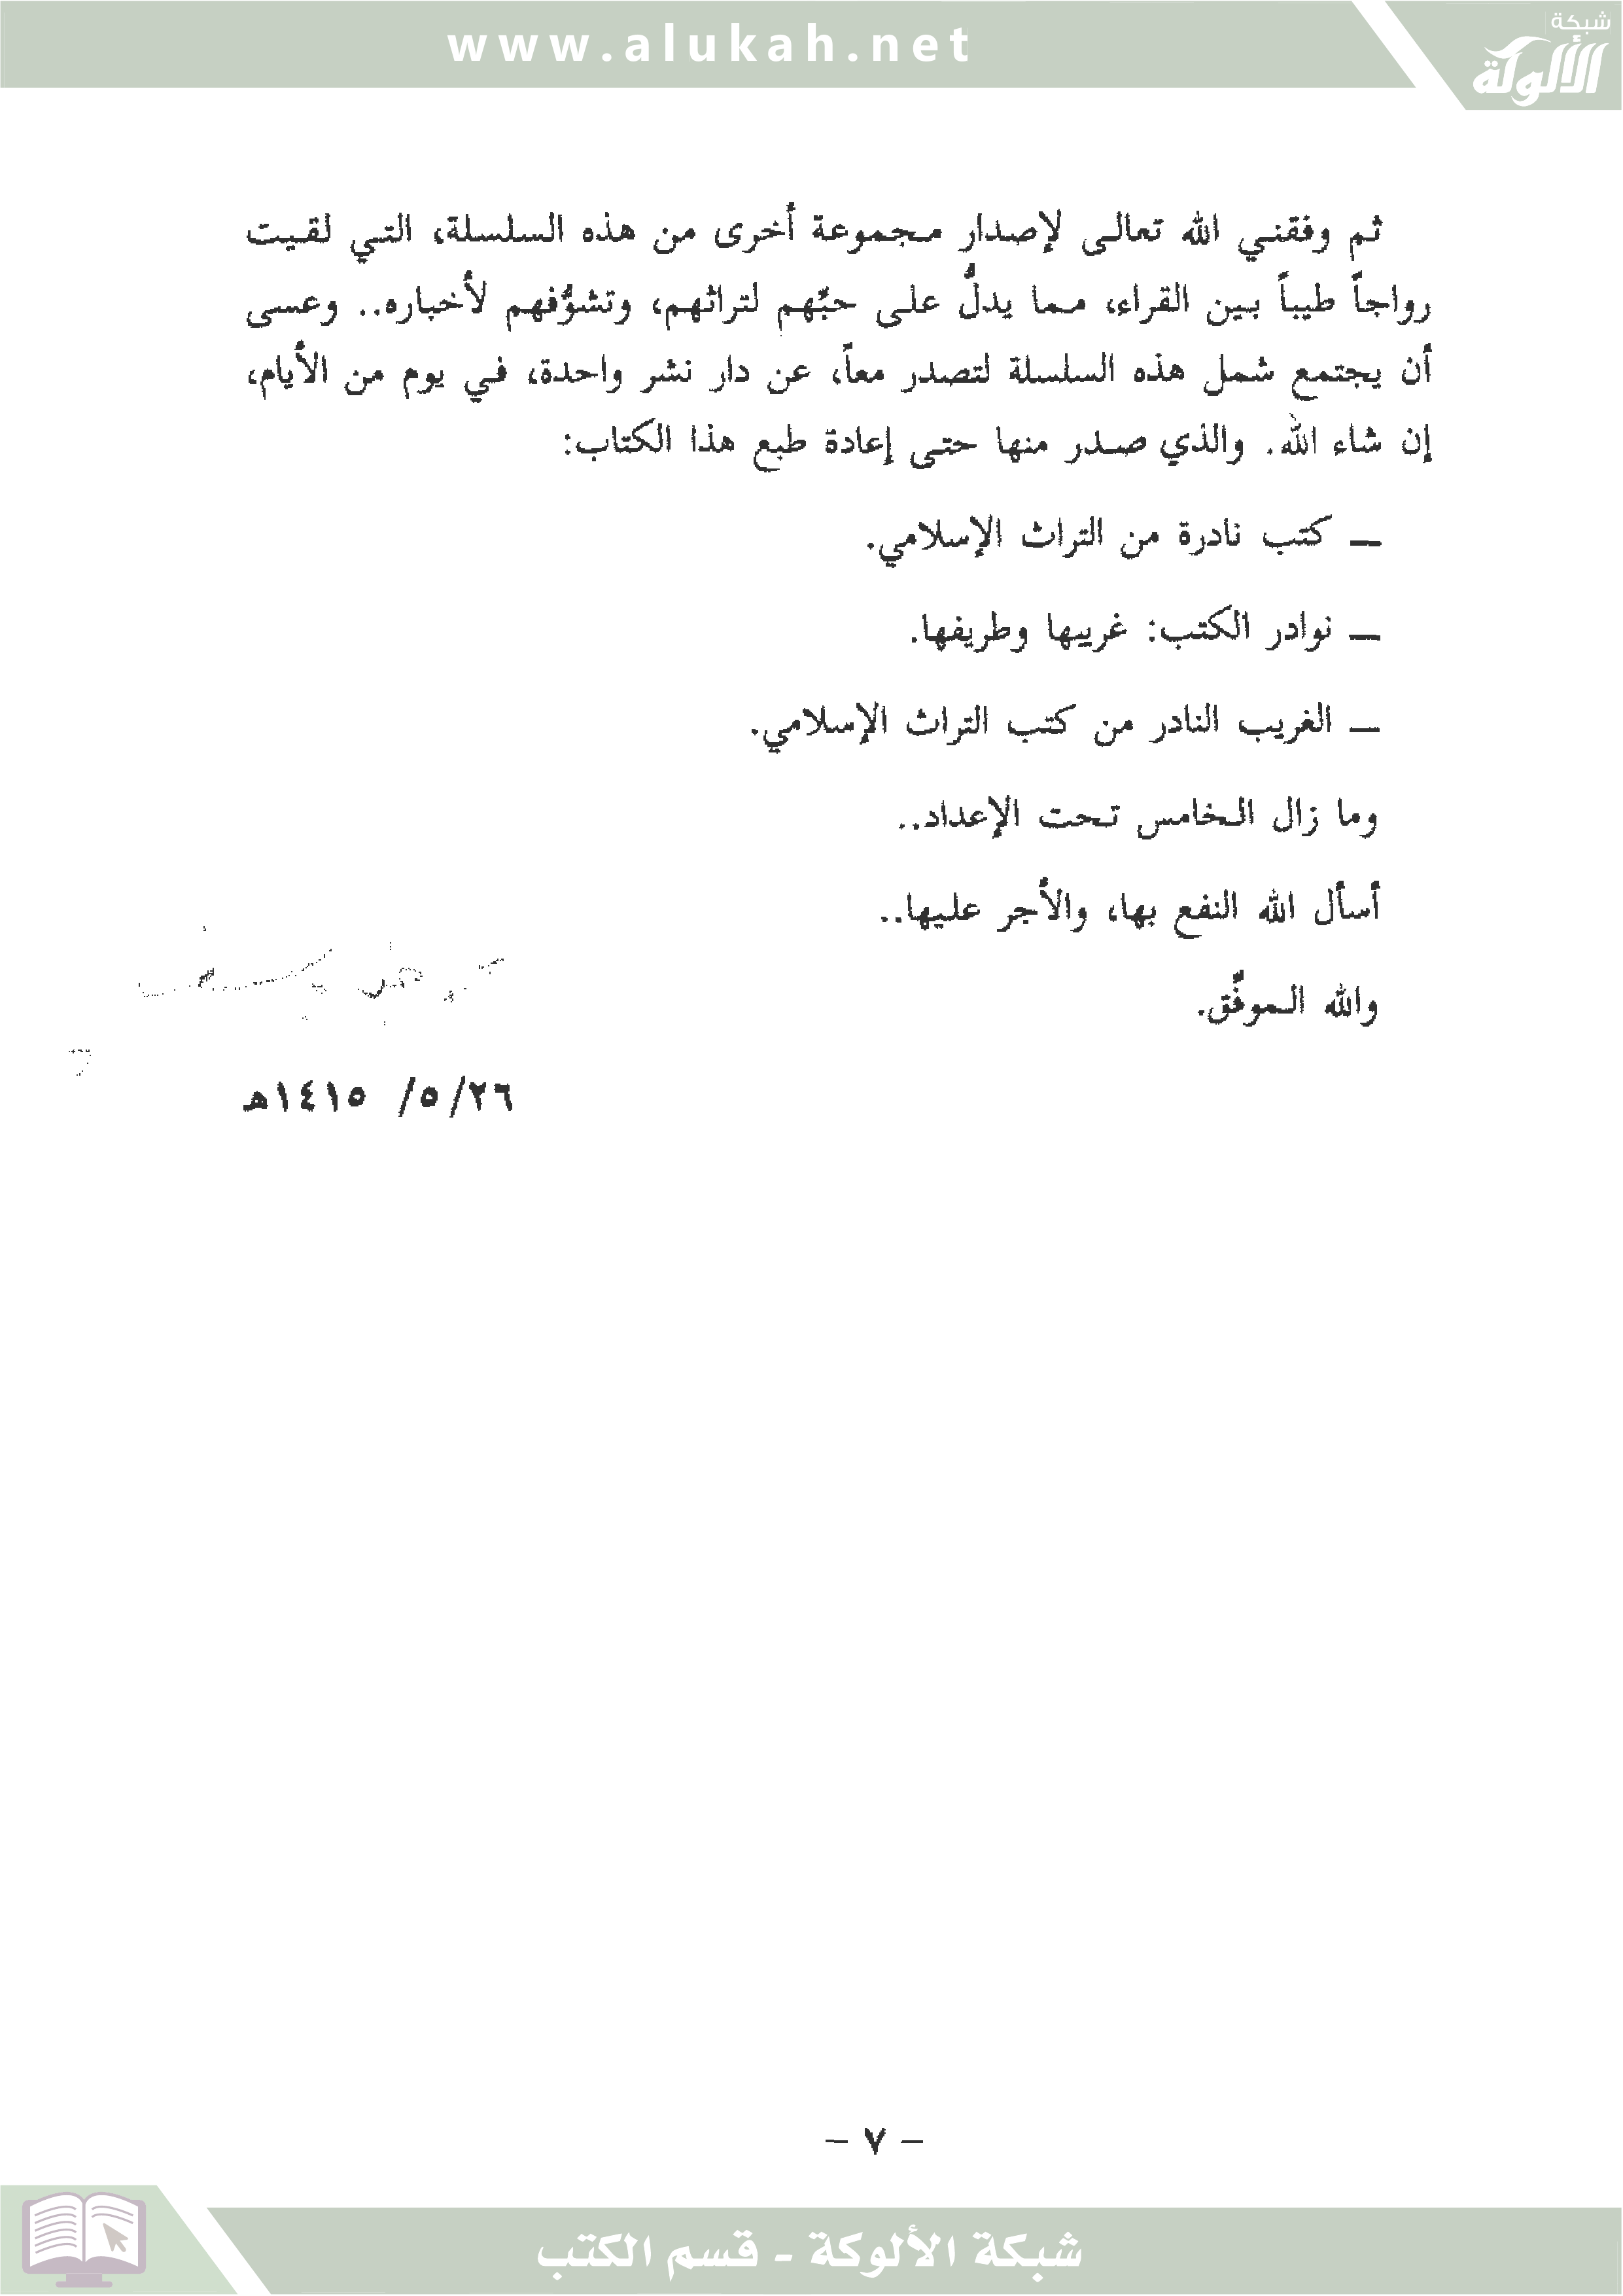 www.alukah.net
شبكة
الألوكة
ثم وفقني الله تعالى لإصدار مجموعة أخرى من هذه السلسلة، التي لقيت
رواجاً طيباً بين القراء، مما يدلُّ على حبِّهم لتراثهم، وتشوُّفهم لأخباره.. وعسى
أن يجتمع شمل هذه السلسلة لتصدر معاً، عن دار نشر واحدة، في يوم من الأيام،
إن شاء الله. والذي صدر منها حتى إعادة طبع هذا الكتاب:
— كتب نادرة من التراث الإسلامي.
— نوادر الكتب: غريبها وطريفها.
— الغريب النادر من كتب التراث الإسلامي.
وما زال الخامس تحت الإعداد..
أسأل الله النفع بها، والأجر عليها..
والله الموفِّق.
٢٦/ ٥/ ١٤١٥هـ
– ٧ –
شبكة الألوكة - قسم الكتب